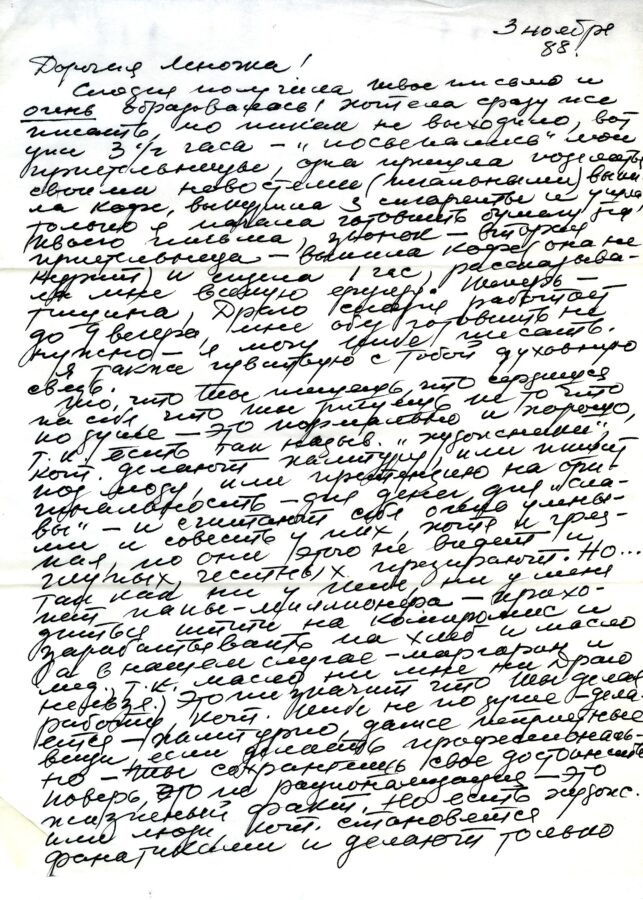 3 ноября
88.
Дорогая Леножа!
Сегодня получила твое письмо и
очень обрадовалась! Хотела сразу же
писать, но никак не выходило, вот
уже 3 ½ часа – "посыпались" мои
приятельницы, одна пришла поделиться
своими новостями (печальными) выпи-
ла кофе, выкурила 3 сигареты и ушла
только я начала готовить бумагу для
твоего письма, звонок – вторая
приятельница – выпила кофе (она не
курит) и сидела 1 час, рассказыва-
ла мне всякую ерунду. Теперь –
тишина, Драго сегодня работает
до 9 вечера, мне обед готовить не
нужно – я могу тебе писать.
Я также чувствую с Тобой духовную
связь.
То, что Ты пишешь, что сердишься
на себя что ты рисуешь не то что
по душе – это нормально и хорошо,
т.к. есть так назыв. "художники",
кот. делают халтуру, или пишут
под моду, или претензию на ори-
гинальность – для денег, для "сла-
вы" – и считают себя очень умны-
ми и совесть у них, хотя и гряз-
ная, но они этого не видят и
глупых, честных презирают. Но...
так как ни у тебя, ни у меня
нет папы-миллионера – прихо-
дится идти на компромис и
зарабатывать на хлеб и масло
(а в нашем случае – маргарин и
мед. т.к. масло ни мне ни Драго
нельзя.) Это не значит что Ты делая
работу кот. Тебе не по душе – дела-
ется – халтурно, даже неприятные
вещи, если делать профессиональ-
но – ты сохраняешь свое достоинство
поверь, это не рационализация – это
жизненый факт. Но есть художн.
или люди кот. становятся
фанатиками и делают только